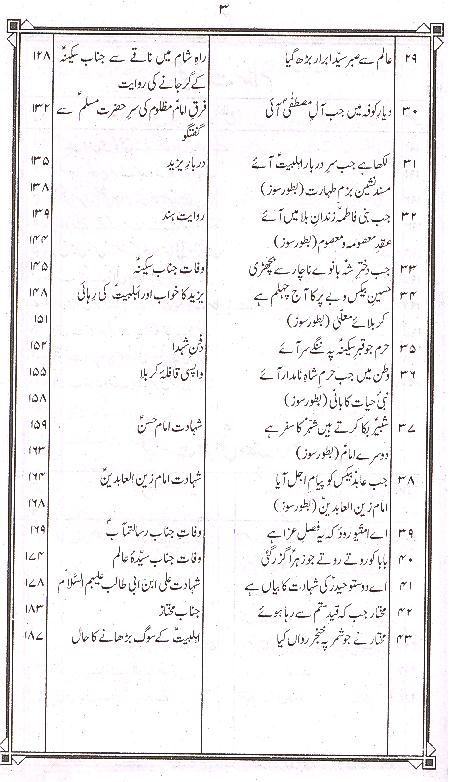 ۳
۲۹ عالم سے صبر سیّدِ ابرار بڑھ گیا راہِ شام میں ناقے سے جناب سکینہؑ ۱۲۸
کے گر جانے کی روایت
۳۰ دیارِ کوفہ میں جب آلِ مصطفیٰؐ آئی فرقِ امامِ مظلوم کی سرِ حضرت مسلمؑ سے ۱۳۲
گفتگو
۳۱ لکھا ہے جب سرِ دربار اہلبیتؑ آئے دربارِ یزید ۱۳۵
مسند نشین بزمِ طہارت (بطور سوز) ۱۳۸
۳۲ جب بنی فاطمہؑ زندانِ بلا میں آئے روایت ہند ۱۳۹
عقدِ معصومہ و معصوم (بطور سوز) ۱۴۴
۳۳ جب دخترِ شہؑ بانوے ناچار سے بچھڑی وفات جناب سکینہؑ ۱۴۵
۳۴ حسینِ بیکس و بے پر کا آج چہلم ہے یزید کا خواب اور اہلبیتؑ کی رہائی ۱۴۸
کربلائے معلّٰی (بطور سوز) ۱۵۱
۳۵ حرم جو قبرِ سکینہؑ پہ ننگے سر آئے دفنِ شہدا ۱۵۲
۳۶ وطن میں جب حرمِ شاہِ نامدار آئے واپسی قافلۂ کربلا ۱۵۵
نبیؐ حیات کا بانی (بطور سوز) ۱۵۸
۳۷ شبیرؑ بکا کرتے ہیں شبّرؑ کا سفر ہے شہادت امام حسنؑ ۱۵۹
دوسرے امامؑ (بطور سوز) ۱۶۳
۳۸ جب عابدِ بیکس کو پیامِ اجل آیا شہادت امام زین العابدینؑ ۱۶۴
امام زین العابدینؑ (بطور سوز) ۱۶۸
۳۹ اے امتیو روؤ کہ یہ فصلِ عزا ہے وفاتِ جناب رسالتمآبؐ ۱۶۹
۴۰ بابا کو روتے روتے جو زہراؑ گزر گئی وفات جناب سیّدۂ عالم ۱۷۴
۴۱ اے دوستو حیدرؑ کی شہادت کا بیاں ہے شہادت علی ابن ابی طالب علیہم السّلام ۱۷۸
۴۲ مختار جب کہ قیدِ ستم سے رہا ہوئے جناب مختار ۱۸۳
۴۳ مختار نے جو شمر پہ خنجر رواں کیا اہلبیتؑ کے سوگ بڑھانے کا حال ۱۸۷